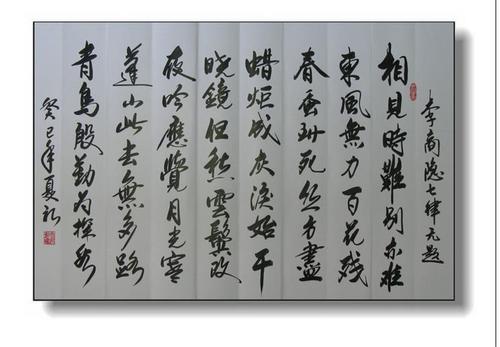 李商隐七律无题
相見時難别亦難
東風無力百花殘
春蚕到死丝方盡
蜡炬成灰淚始干
晓鏡但愁雲鬓改
夜吟應覺月光寒
蓬山此去無多路
青鳥殷勤为探看
癸巳年夏